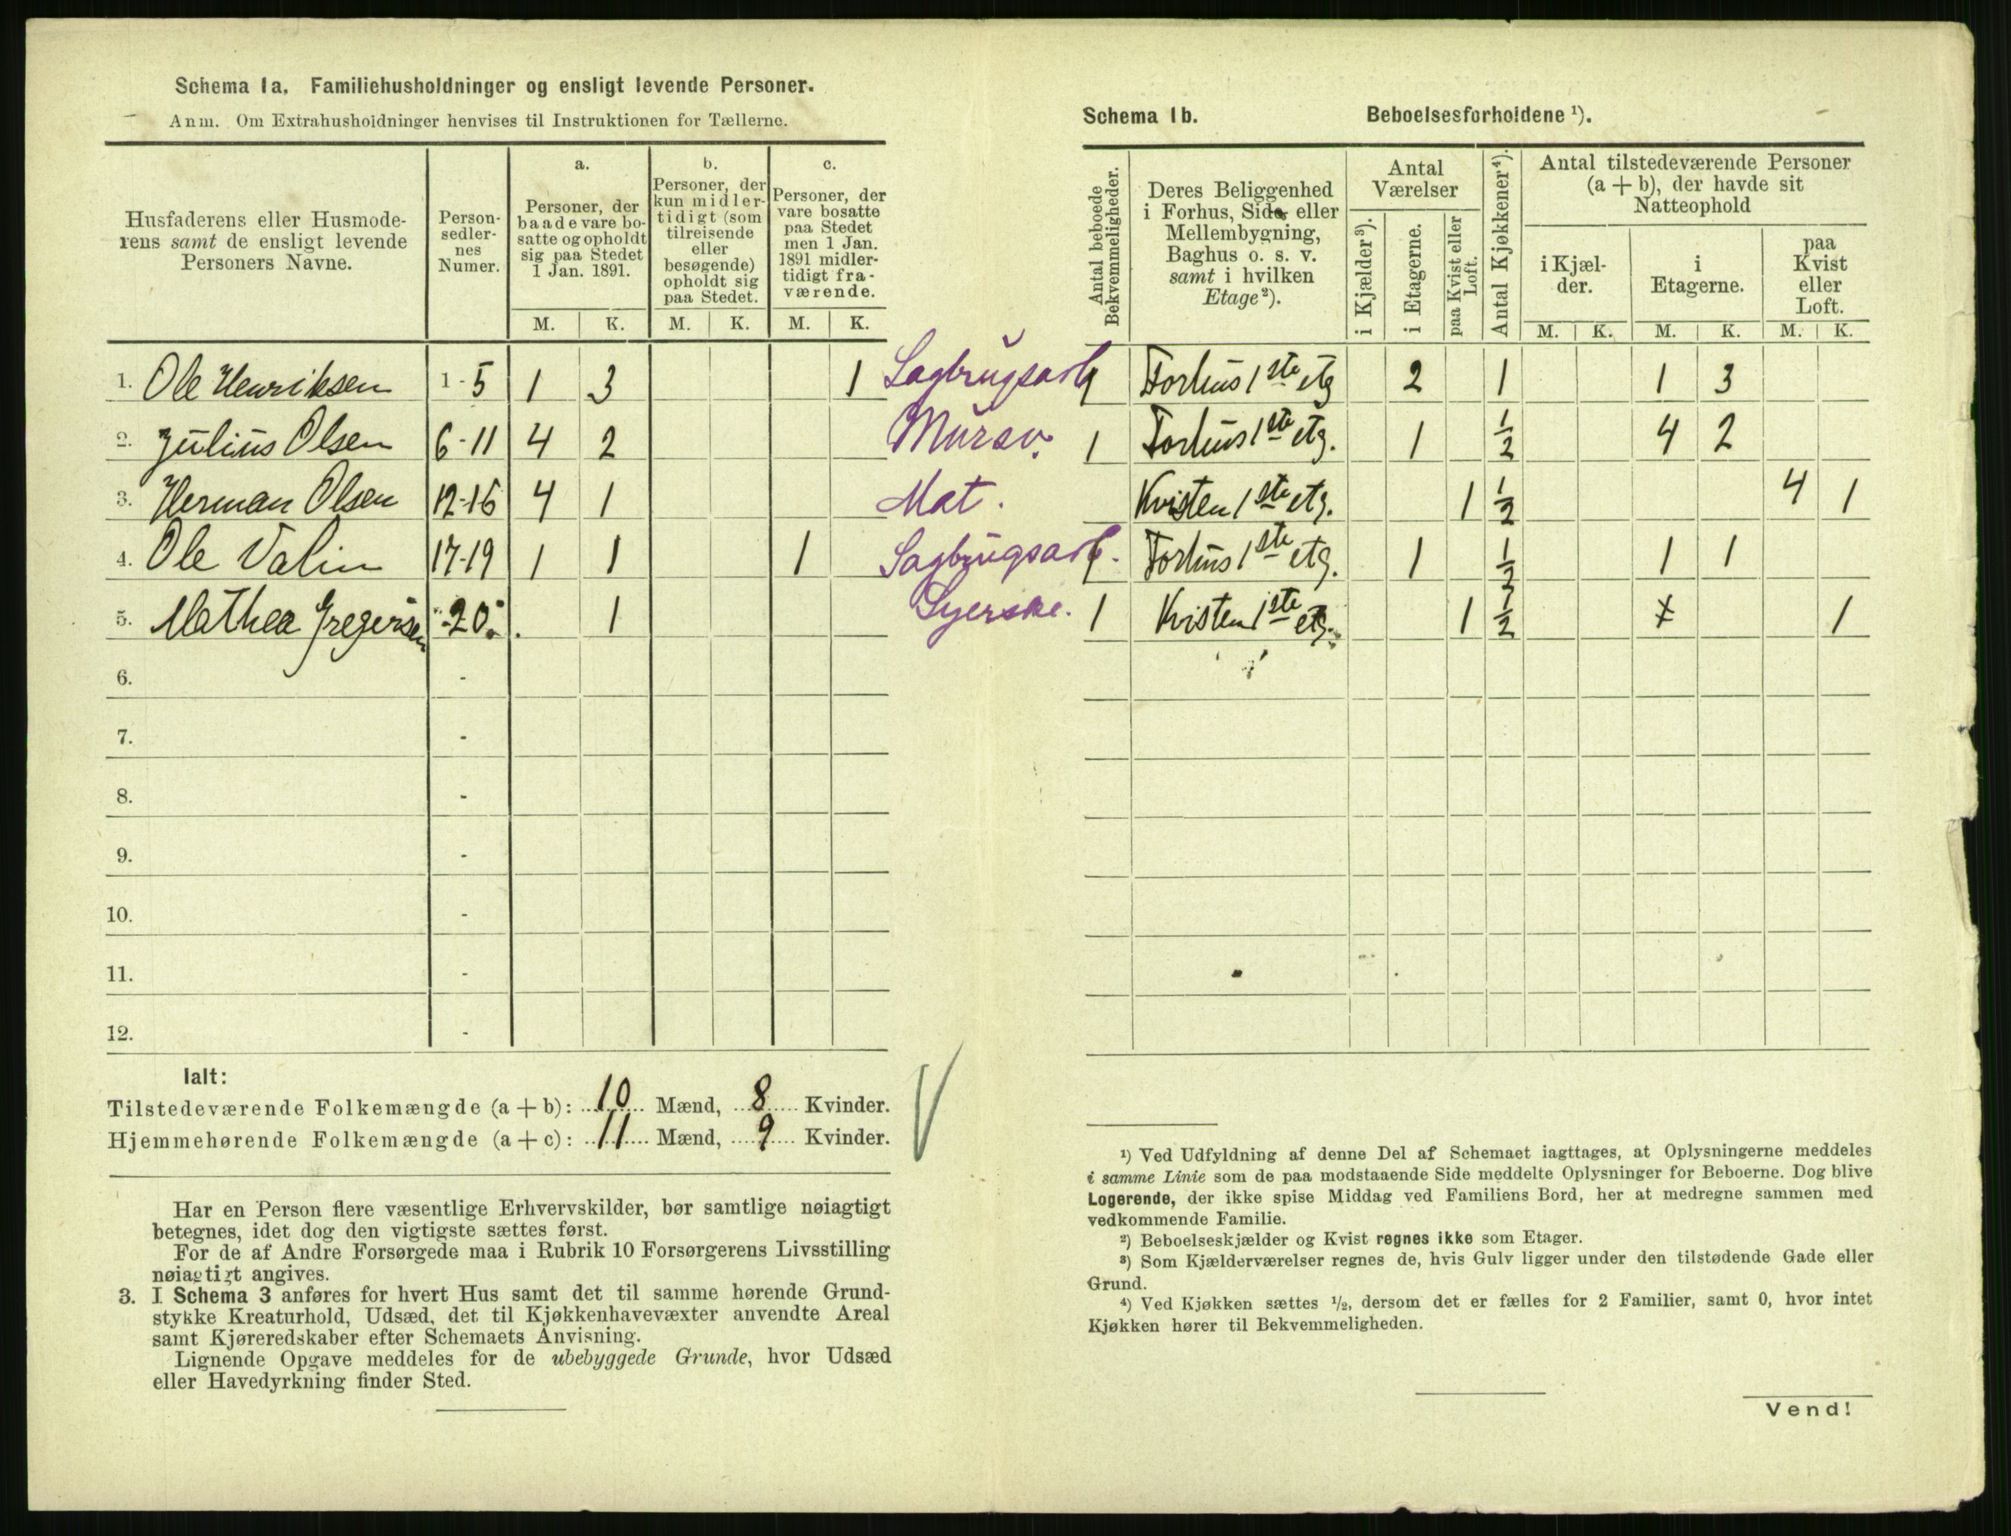 Schema 1a. Familiehusholdninger og ensligt levende Personer.
Anm. Om Extrahusholdninger henvises til Instruktionen for Tællerne.
Husfaderens eller Husmode-
rens samt de ensligt levende
Personers Navne.
Person-
sedler-
nes
Numer.
a.
Personer, der
baade vare bo-
satte og opholdt
sig paa Stedet
1 Jan. 1891.
b.
Personer, der
kun midler-
tidigt (som
tilreisende
eller
besøgende)
opholdt sig
paa Stedet.
c.
Personer, der
vare bosatte
paa Stedet
men 1 Jan.
1891 midler-
tidigt fra-
værende.
M. K. M. K. M. K.
1. Ole Henriksen 1-5 1 3 1 Sagbrugsarb
2. Julius Olsen 6-11 4 2 Murar.
3. Herman Olsen 12-16 4 1 Mat.
4. Ole Valin 17-19 1 1 1 Sagbrugsarb.
5. Mathea Gregersen -20 1 Syerske.
6. -
7. -
8. -
9. -
10. -
11. -
12. -
Ialt:
Tilstedeværende Folkemængde (a + b): 10 Mænd, 8 Kvinder.
Hjemmehørende Folkemængde (a + c): 11 Mænd, 9 Kvinder.
Har en Person flere væsentlige Erhvervskilder, bør samtlige nøiagtigt
betegnes, idet dog den vigtigste sættes først.
For de af Andre Forsørgede maa i Rubrik 10 Forsørgerens Livsstilling
nøiagtigt angives.
3. I Schema 3 anføres for hvert Hus samt det til samme hørende Grund-
stykke Kreaturhold, Udsæd, det til Kjøkkenhavevæxter anvendte Areal
samt Kjøreredskaber efter Schemaets Anvisning.
Lignende Opgave meddeles for de ubebyggede Grunde, hvor Udsæd
eller Havedyrkning finder Sted.
Schema 1b. Beboelsesforholdene ¹).
Antal beboede
Bekvemmeligheder.
Deres Beliggenhed
i Forhus, Side eller
Mellembygning,
Baghus o. s. v.
samt i hvilken
Etage ²).
Antal
Værelser
i Kjælder ³).
i Etagerne.
paa Kvist eller
Loft.
Antal Kjøkkener ⁴).
Antal tilstedeværende Personer
(a + b), der havde sit
Natteophold
i Kjæl-
der.
i
Etagerne.
paa
Kvist
eller
Loft.
M. K. M. K. M. K.
1 Forhus 1ste etg 2 1 1 3
1 Forhus 1ste etg. 1 1/2 4 2
Kvisten 1ste etg. 1 1/2 4 1
1 Forhus 1ste etg. 1 1/2 1 1
1 Kvisten 1ste etg. 1 1/2 x 1
¹) Ved Udfyldning af denne Del af Schemaet iagttages, at Oplysningerne meddeles
i samme Linie som de paa modstaaende Side meddelte Oplysninger for Beboerne. Dog blive
Logerende, der ikke spise Middag ved Familiens Bord, her at medregne sammen med
vedkommende Familie.
²) Beboelseskjælder og Kvist regnes ikke som Etager.
³) Som Kjælderværelser regnes de, hvis Gulv ligger under den tilstødende Gade eller
Grund.
⁴) Ved Kjøkken sættes ½, dersom det er fælles for 2 Familier, samt 0, hvor intet
Kjøkken hører til Bekvemmeligheden.
Vend!